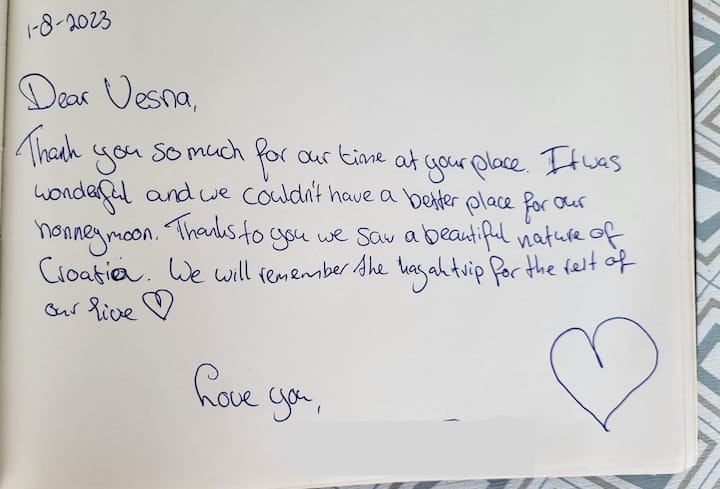 1-8-2023
Dear Vesna,
Thank you so much for our time at your place. It was
wonderful and we couldn't have a better place for our
honneymoon. Thanks to you we saw a beautiful nature of
Croatia. We will remember the kayak trip for the rest of
our live ♡
Love you,